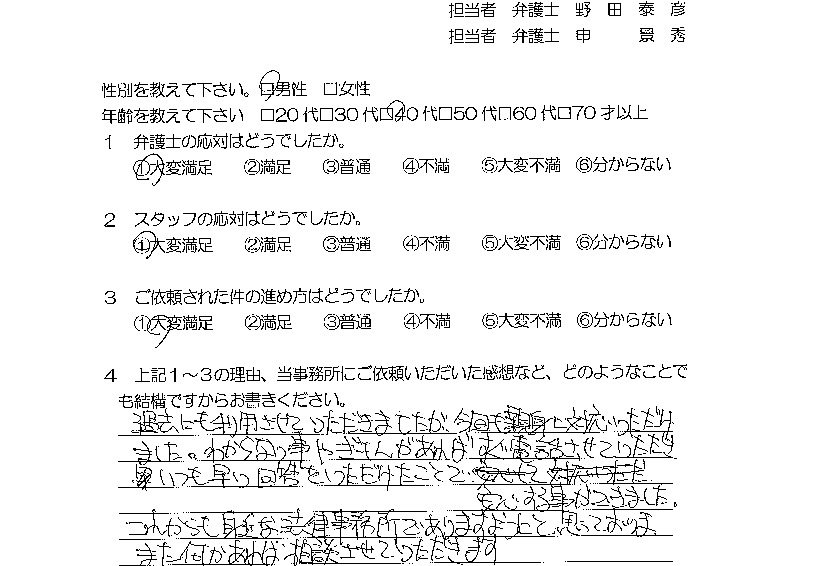 担当者　弁護士　野　田　泰　彦
担当者　弁護士　申　　　景　秀
性別を教えて下さい。□男性　□女性
年齢を教えて下さい　□20代□30代□40代□50代□60代□70才以上
１　弁護士の応対はどうでしたか。
①大変満足　②満足　③普通　④不満　⑤大変不満　⑥分からない
２　スタッフの応対はどうでしたか。
①大変満足　②満足　③普通　④不満　⑤大変不満　⑥分からない
３　ご依頼された件の進め方はどうでしたか。
①大変満足　②満足　③普通　④不満　⑤大変不満　⑥分からない
４　上記１～３の理由、当事務所にご依頼いただいた感想など、どのようなことで
も結構ですからお書きください。
過去にも利用させていただきましたが、今回も親身に対応いただけ
ました。わからない事やぎもんがあればすぐ電話させていただけ
いつも早い回答をいただけたことで
安心する事ができました。
これからも身近な法律事務所でありますようにと、思っておりま
また何かあれば相談させていただきます